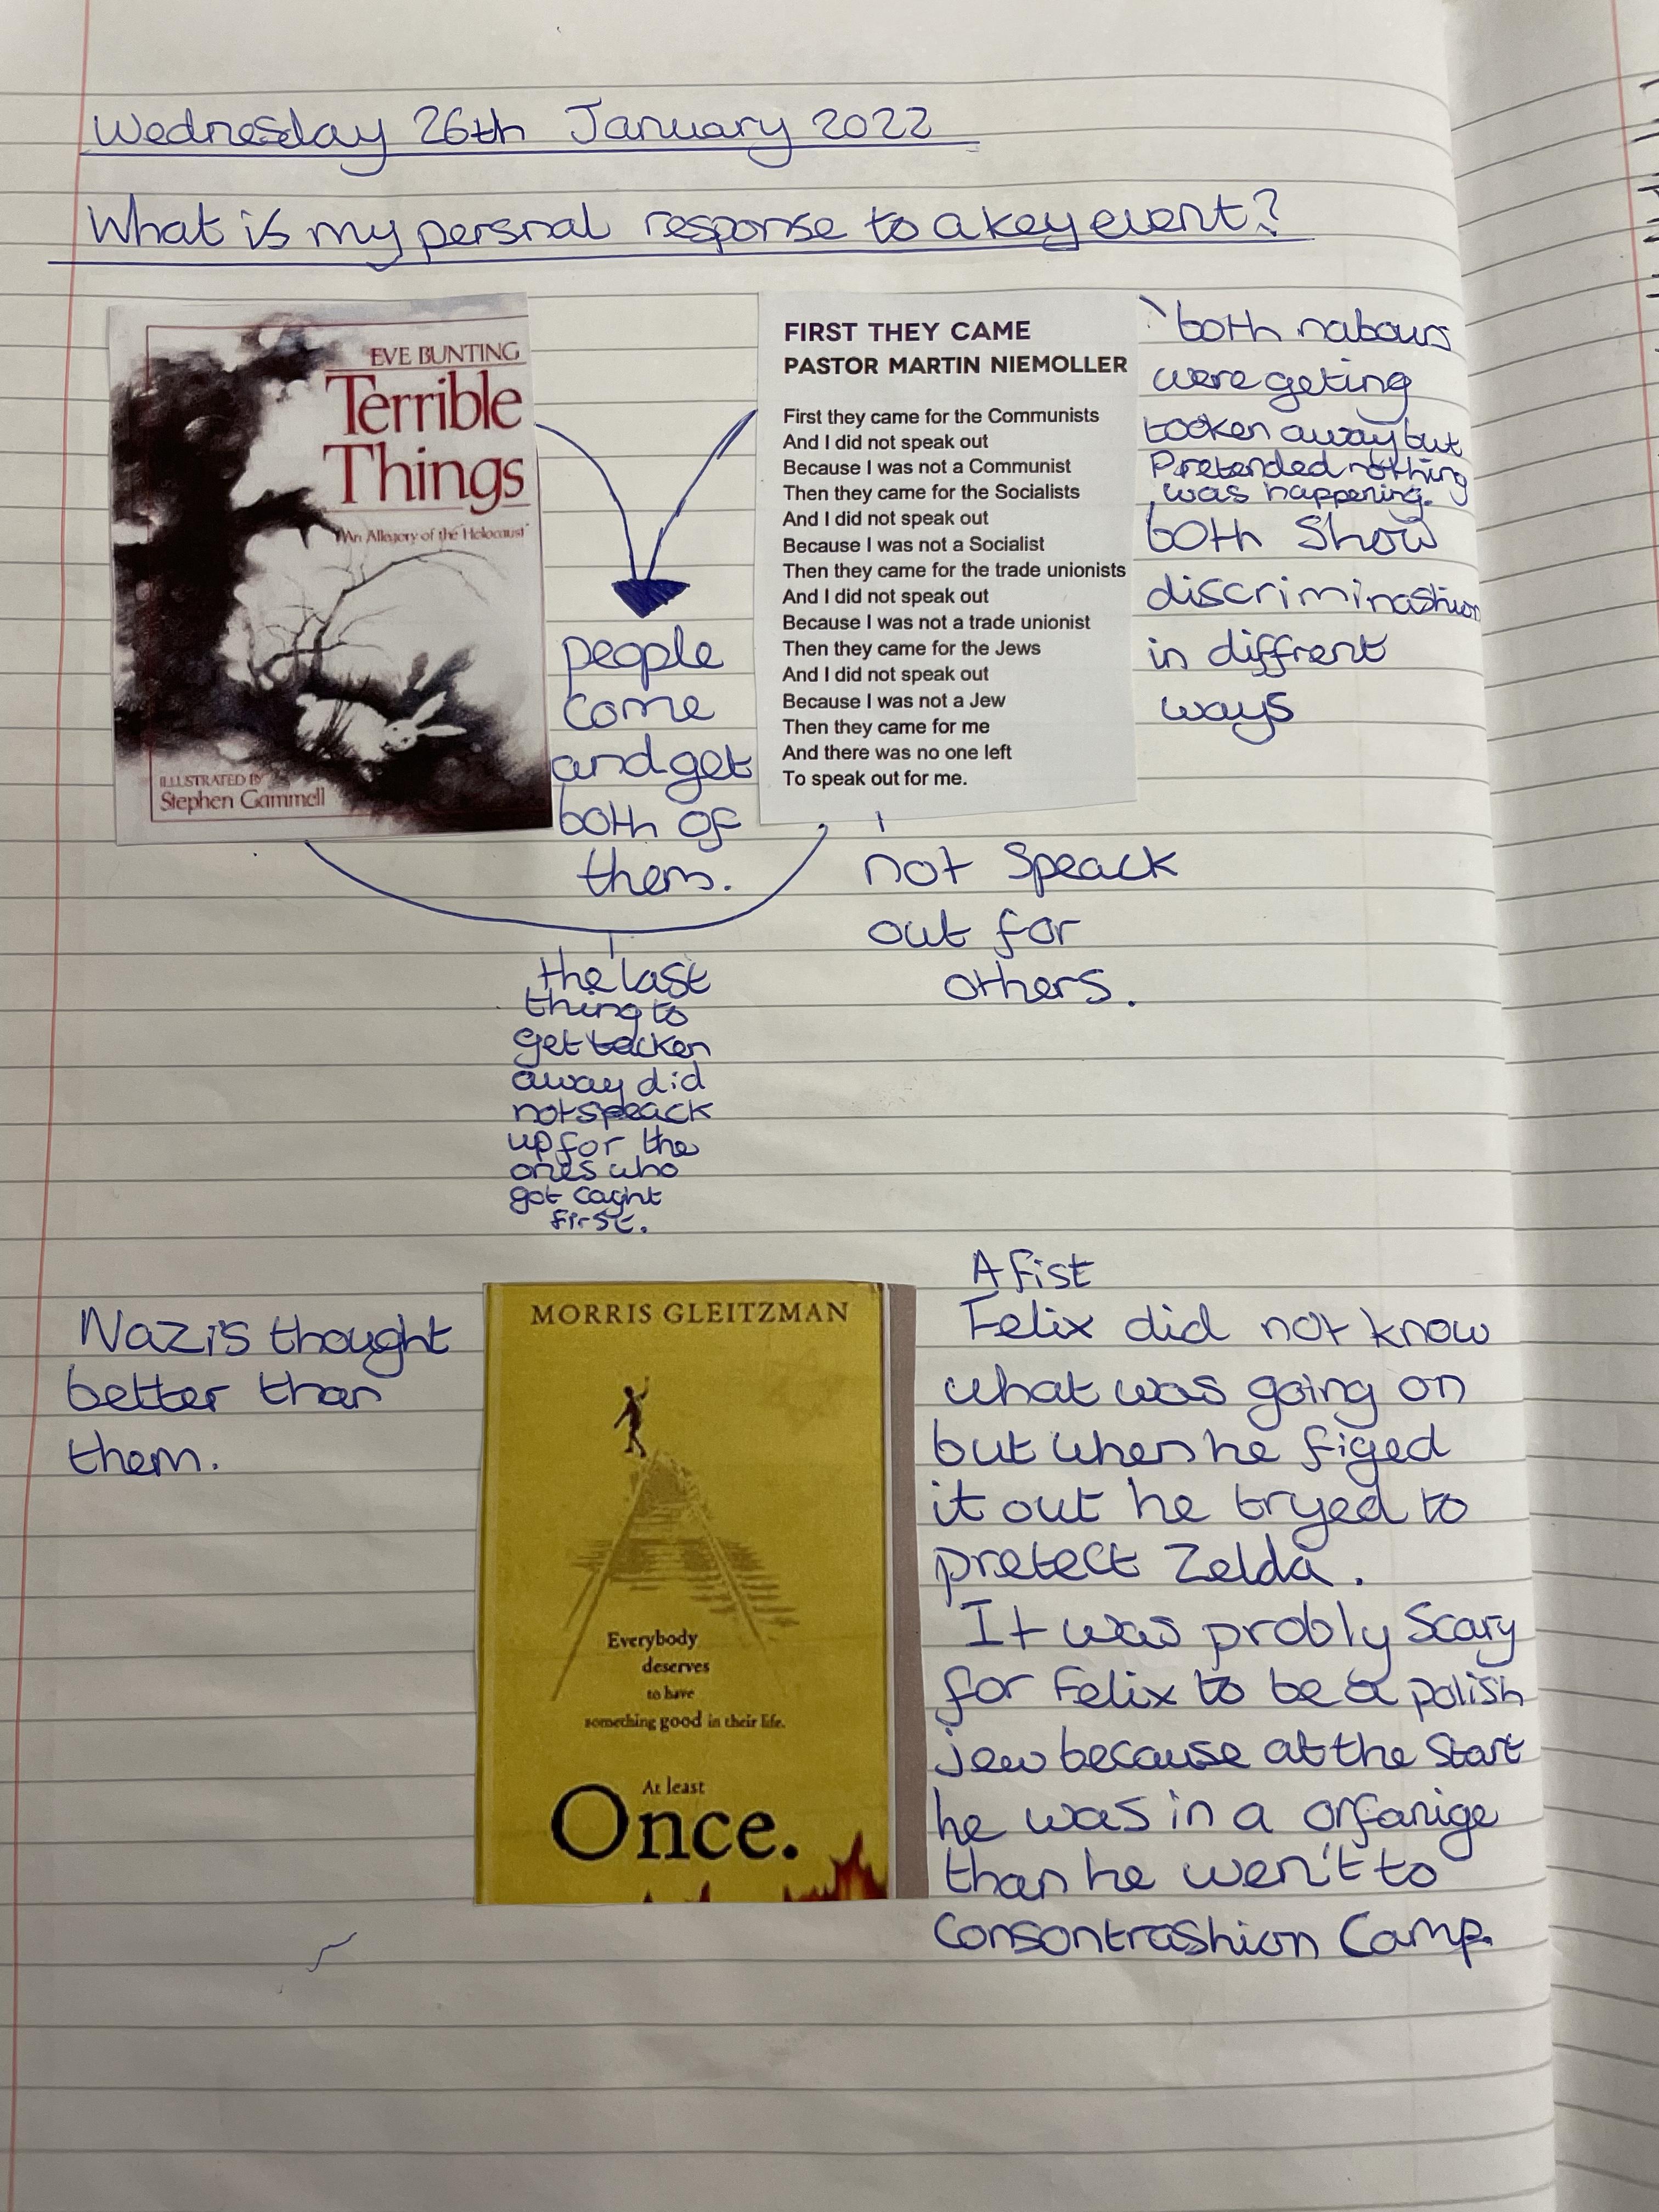 Wednesday 26th January 2022
What is my persnal response to a key event?
EVE BUNTING
Terrible
Things
An Allegory of the Holocaust
ILLUSTRATED BY
Stephen Gammell
people
come
and get
both of
them.
FIRST THEY CAME
PASTOR MARTIN NIEMOLLER
First they came for the Communists
And I did not speak out
Because I was not a Communist
Then they came for the Socialists
And I did not speak out
Because I was not a Socialist
Then they came for the trade unionists
And I did not speak out
Because I was not a trade unionist
Then they came for the Jews
And I did not speak out
Because I was not a Jew
Then they came for me
And there was no one left
To speak out for me.
both nabours
were geting
tooken away but
Pretended nothing
was happening.
both show
discriminashion
in diffrent
ways
not speack
out for
others.
the last
thing to
get tacken
away did
not speack
up for the
ones who
got caght
first.
Nazi's thought
better than
them.
MORRIS GLEITZMAN
Everybody
deserves
to have
something good in their life.
At least
Once.
A fist
Felix did not know
what was going on
but when he figed
it out he tryed to
pretect Zelda.
It was probly scary
for Felix to be a polish
jew because at the start
he was in a orfanige
than he wen't to
Consontrashion Camp.